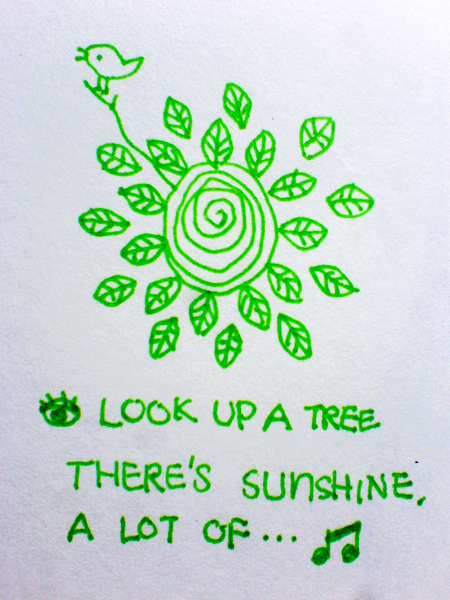 LOOK UP A TREE
THERE'S SUNSHINE,
A LOT OF...